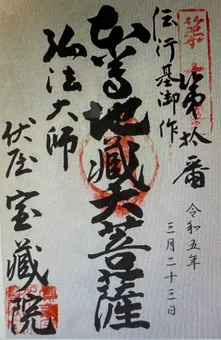 第拾番
伝行基御作
本尊地蔵大菩薩
弘法大師
伏屋宝蔵院
令和五年
三月二十三日